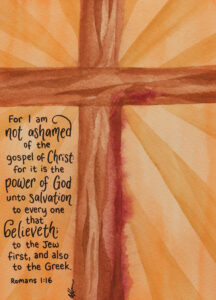 For I am
not ashamed
of the
gospel of Christ
for it is the
power of God
unto salvation
to every one
that
believeth;
to the Jew
first, and also
to the Greek.
Romans 1:16